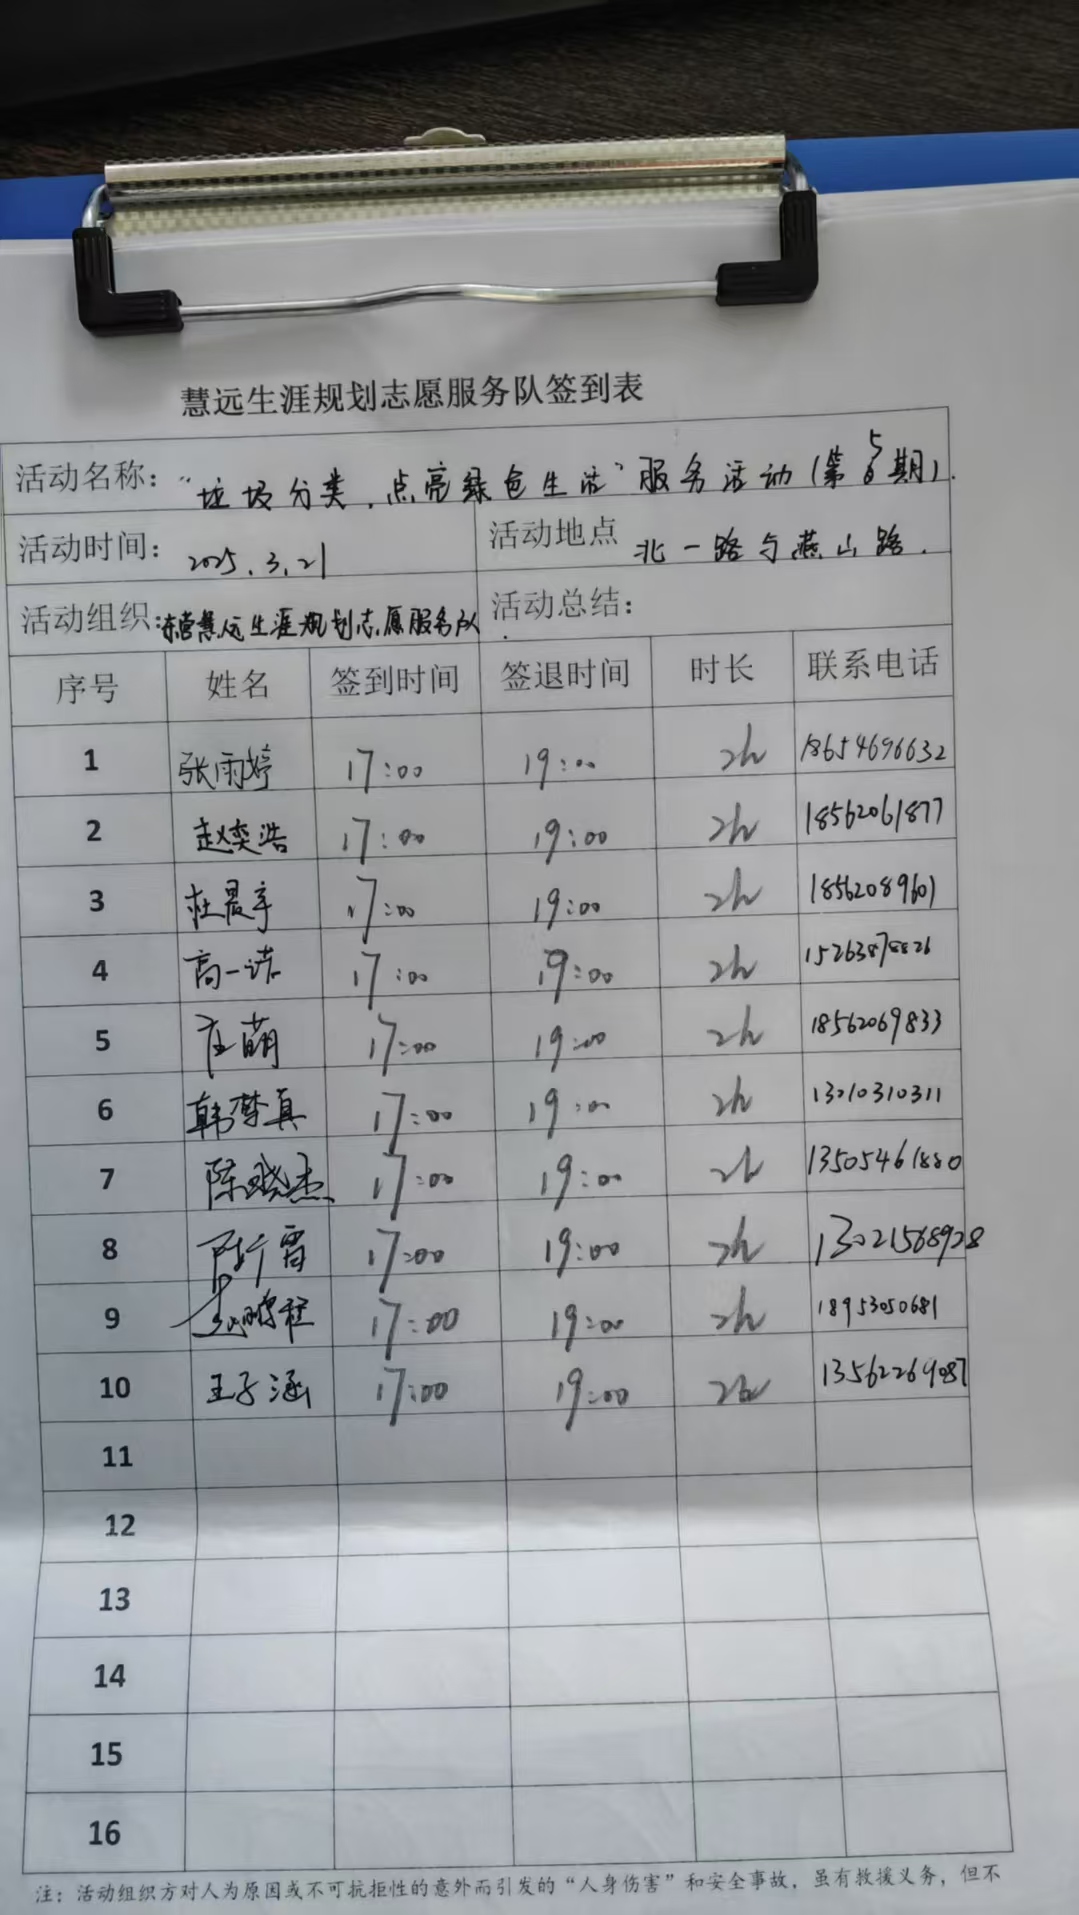 慧远生涯规划志愿服务队签到表
活动名称："垃圾分类,点亮绿色生活"服务活动(第5期).
活动时间：2025.3.21 活动地点 北一路与燕山路.
活动组织:东营慧远生涯规划志愿服务队 活动总结：
序号 姓名 签到时间 签退时间 时长 联系电话
1 张雨婷 17:00 19:00 2h 18654696632
2 赵奕浩 17:00 19:00 2h 18562061877
3 杜晨宇 17:00 19:00 2h 18562089601
4 高一诺 17:00 19:00 2h 15263878826
5 庄萌 17:00 19:00 2h 18562069833
6 韩梦真 17:00 19:00 2h 13010310311
7 陈晓杰 17:00 19:00 2h 13505461880
8 17:00 19:00 2h 13021568928
9 17:00 19:00 2h 18953050681
10 王子涵 17:00 19:00 2h 13562269087
11
12
13
14
15
16
注：活动组织方对人为原因或不可抗拒性的意外而引发的“人身伤害”和安全事故，虽有救援义务，但不